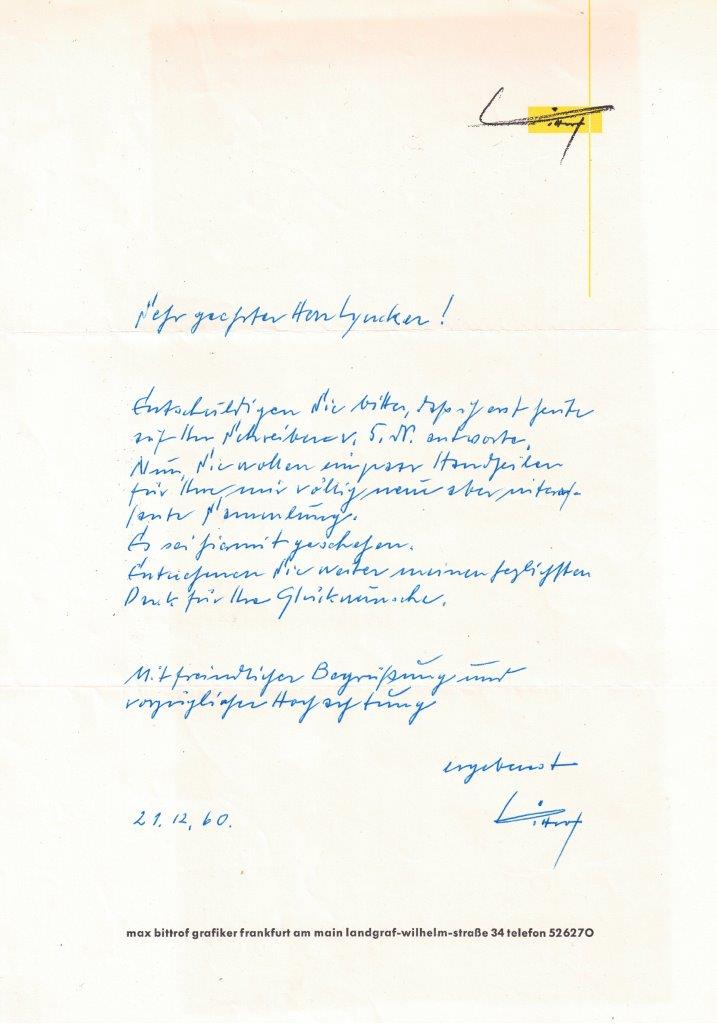 Bittrof
Sehr geehrter Herr Lyncker!
Entschuldigen Sie bitte, daß ich erst heute
auf Ihr Schreiben v. 5. ds. antworte.
Nun, Sie wollen ein paar Handzeilen
für Ihre mir völlig neue aber interes-
sante Sammlung.
Es sei hiermit geschehen.
Entnehmen Sie weiter meinen herzlichsten
Dank für Ihre Glückwünsche.
Mit freundlicher Begrüßung und
vorzüglicher Hochachtung
ergebenst
Bittrof
21.12.60.
max bittrof grafiker frankfurt am main landgraf-wilhelm-straße 34 telefon 526270